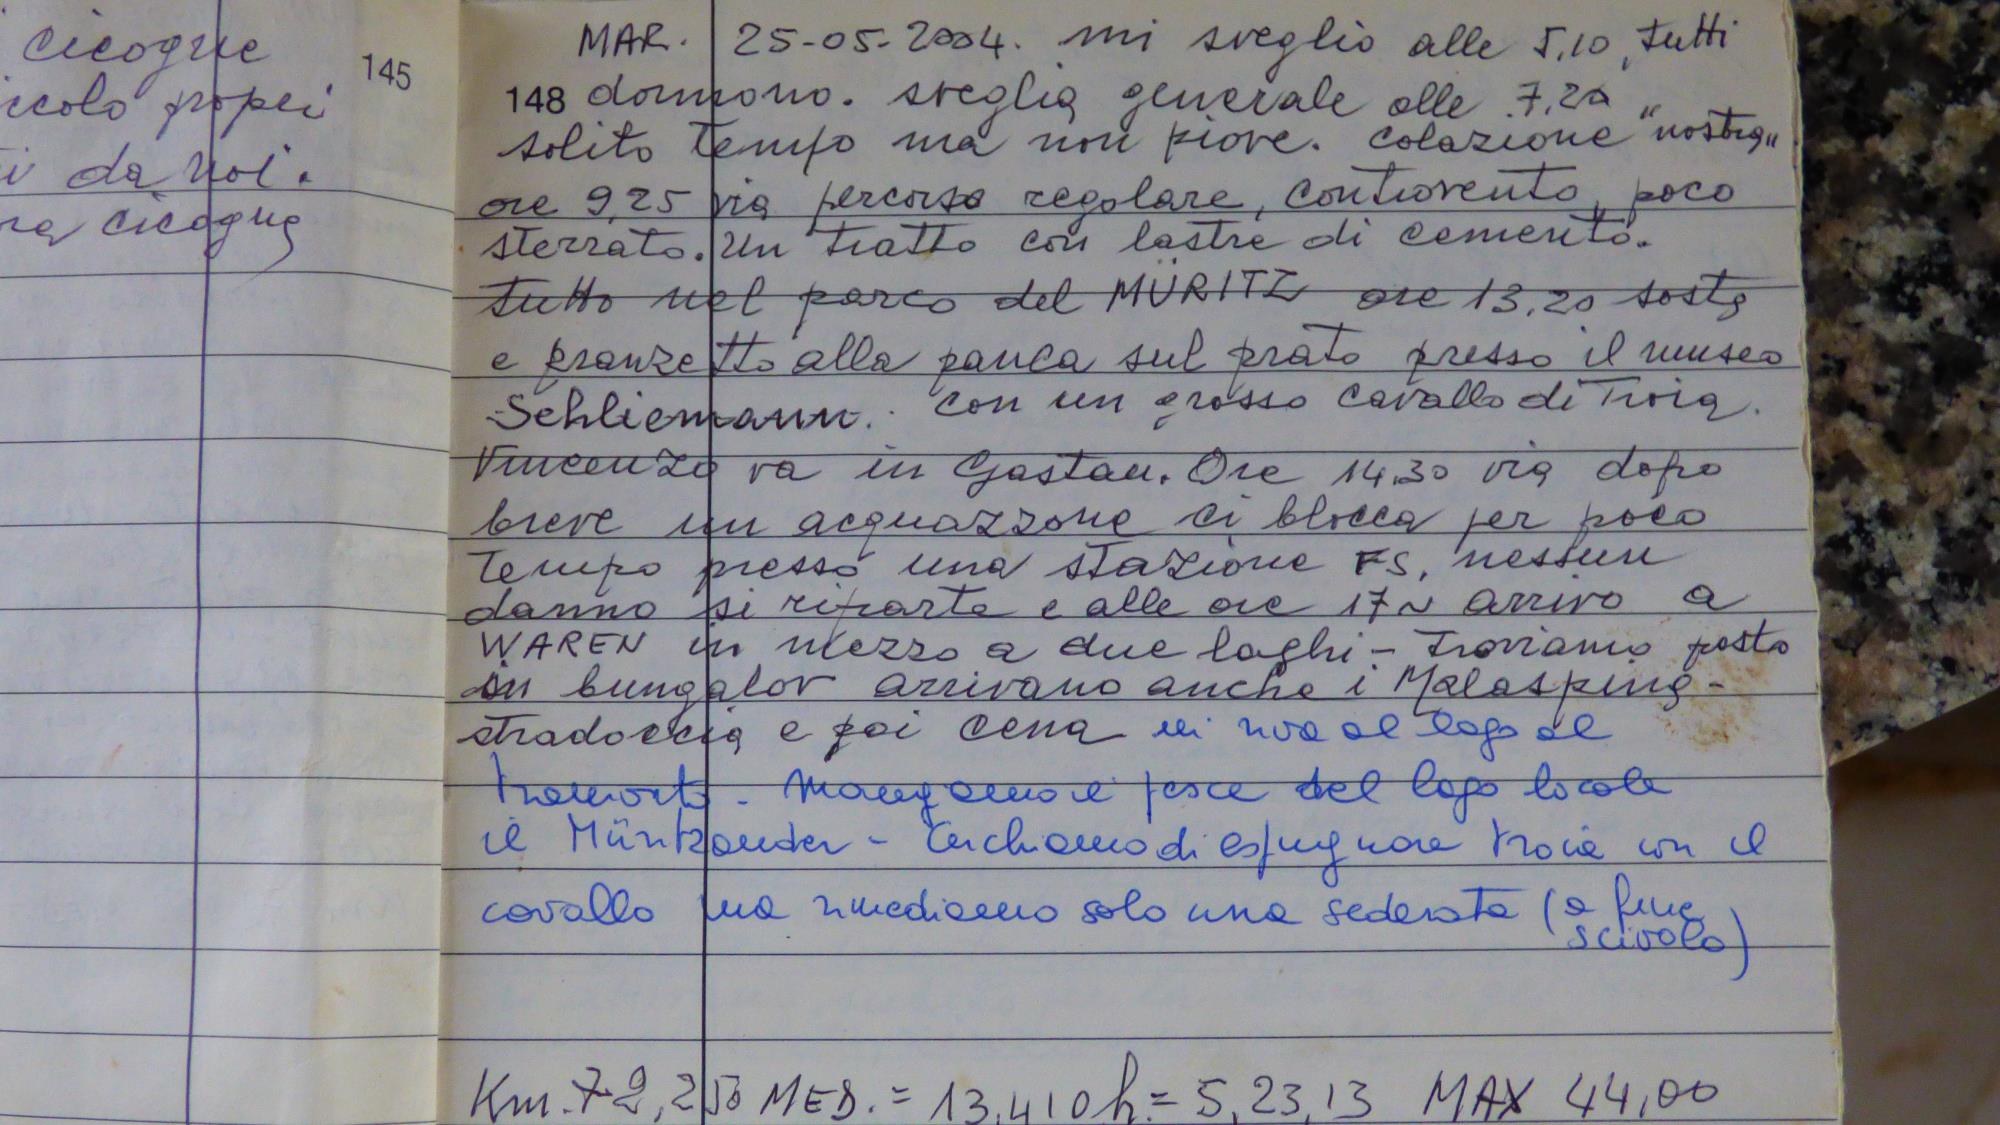 cicogne
145
ccolo propri
i da noi.
ra cicogna
MAR. 25-05-2004. mi sveglio alle 5,10, tutti
148 dormono. sveglia generale alle 7,20
solito tempo ma non piove. colazione "nostra"
ore 9,25 via percorso regolare, controvento, poco
sterrato. un tratto con lastre di cemento.
tutto nel parco del MÜRITZ ore 13,20 sosta
e pranzetto alla panca sul prato presso il museo
Schliemann. con un grosso cavallo di Troia.
Vincenzo va in Gastau. Ore 14,30 via dopo
breve un acquazzone ci blocca per poco
tempo presso una stazione FS, nessun
danno si riparte e alle ore 17~ arrivo a
WAREN in mezzo a due laghi - troviamo posto
in bungalov arrivano anche i Malaspina -
stradoccia e poi cena in riva al lago al
tramonto. Mangiamo il pesce del lago locale
il Müritzander - Cerchiamo di espugnare troia con il
cavallo ma rimediamo solo una sederata (a fine
scivolo)
Km. 72,250 MED. = 13,410 h = 5,23,13 MAX 44,00